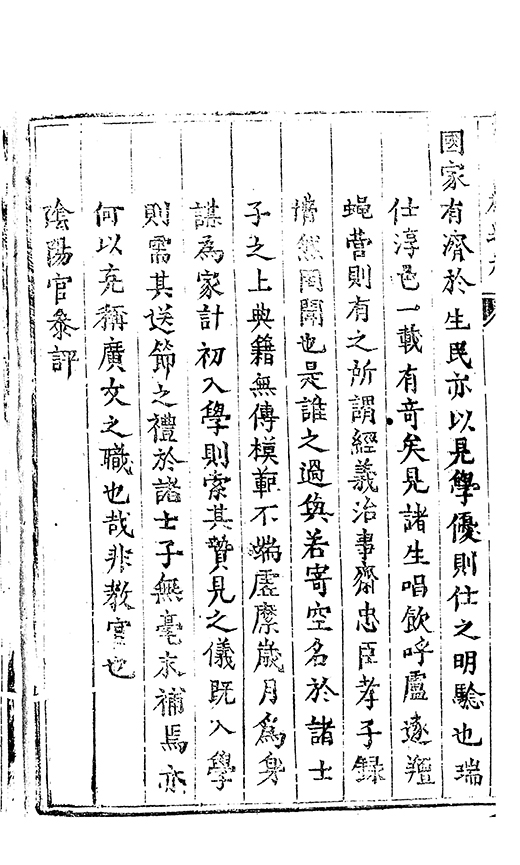 國家有濟於生民亦以見學優則仕之明驗也瑞
仕淳邑一載有奇矣見諸生唱飲呼盧逐羶
蝇營則有之所謂經義治事齋忠臣孝子録
懵然罔聞也是誰之過與若寄空名於諸士
子之上典籍無傳模範不端虛縻歲月為身
謀為家計初入學則索其贄見之儀既入學
則需其送節之禮於諸士子無毫末補焉亦
何以克稱廣文之職也哉非教官也
陰陽官參評